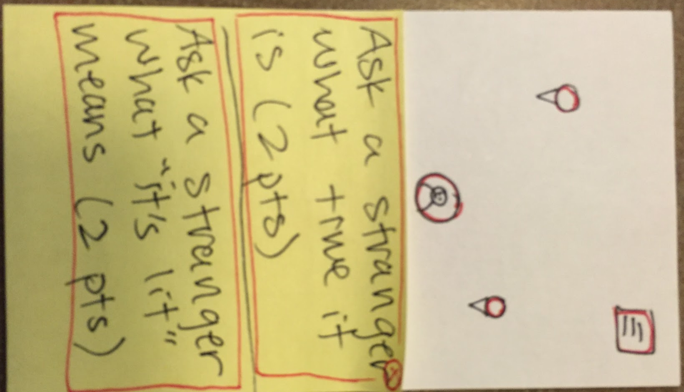 Ask a stranger
what true it
is (2 pts)
Ask a stranger
what "it's lit"
means (2 pts)